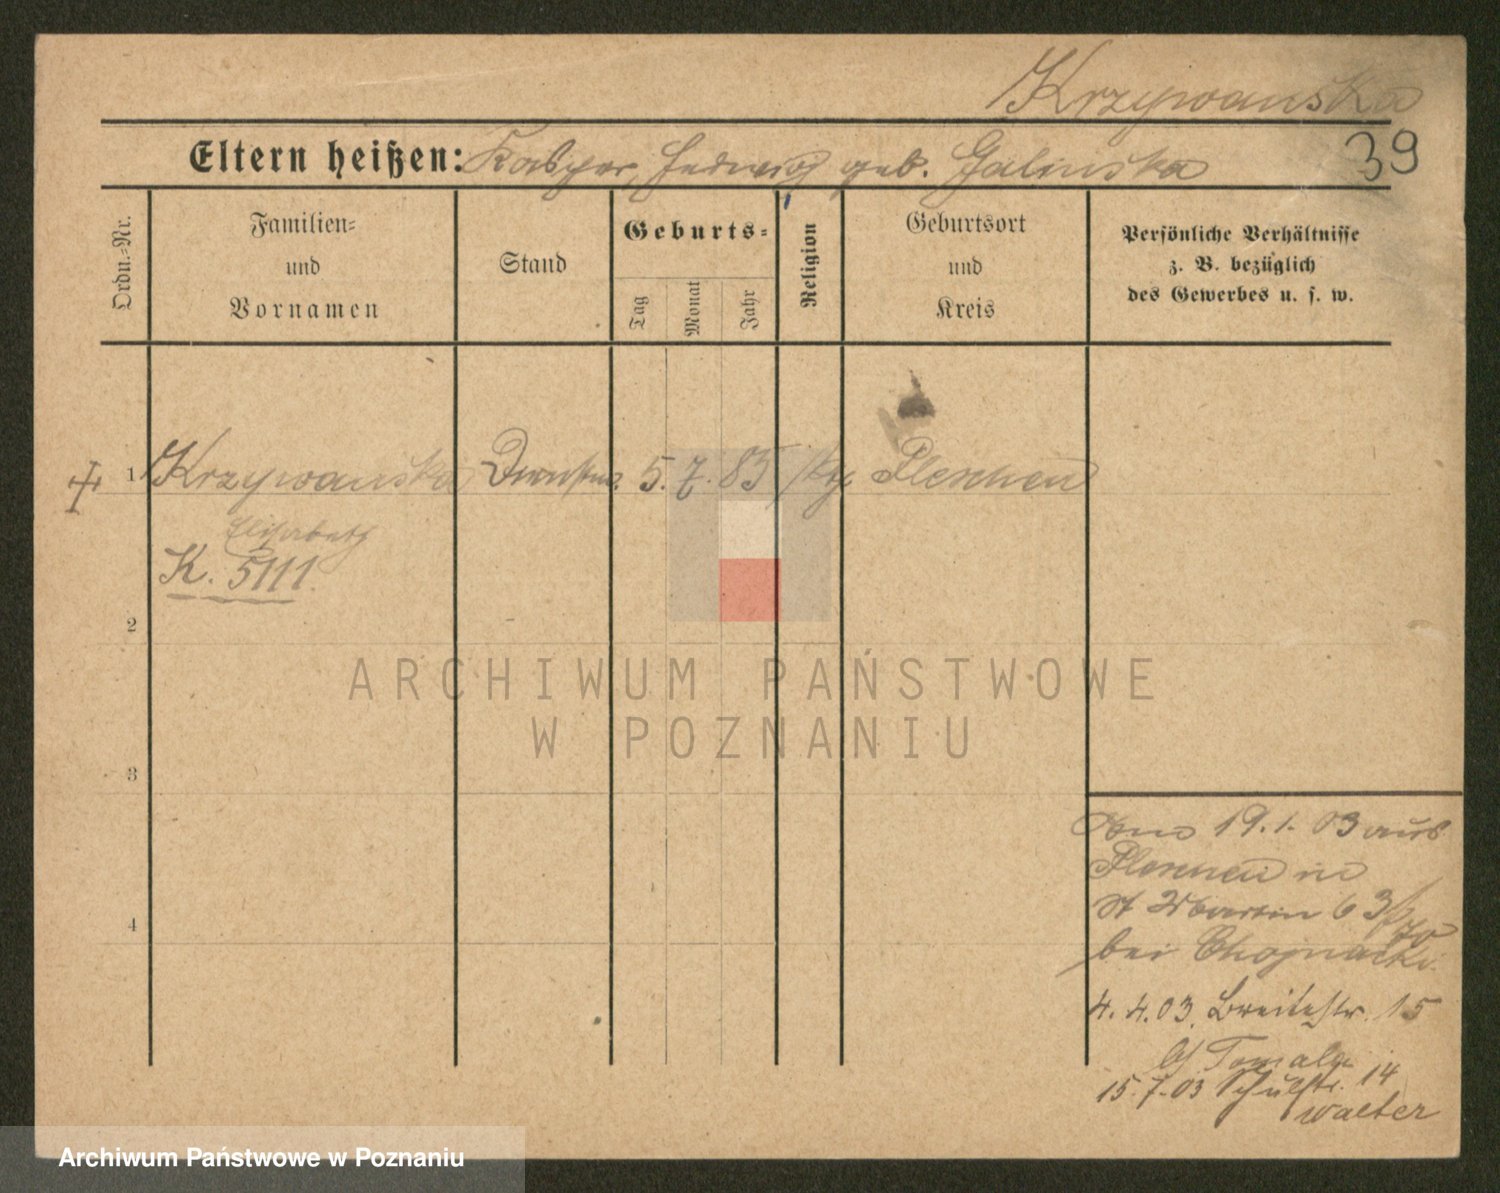 Krzywanska
39
Eltern heißen: Kasper, Hedwig geb. Galinska
Ordn.-Nr.
Familien-
und
Vornamen
Stand
Geburts-
Tag
Monat
Jahr
Religion
Geburtsort
und
Kreis
Persönliche Verhältnisse
z. B. bezüglich
des Gewerbes u. s. w.
1 Krzywanska Dienstm. 5. 7. 85 Pleschen
Elisabeth
K. 5111.
2
3
4
19. 1. 03 aus
Pleschen in
St Martin 63
bei Chojnacki.
4. 4. 03. Breitestr. 15
b/ Tomala
15. 7. 03 Schulstr. 14
Walter
ARCHIWUM PAŃSTWOWE
W POZNANIU
Archiwum Państwowe w Poznaniu